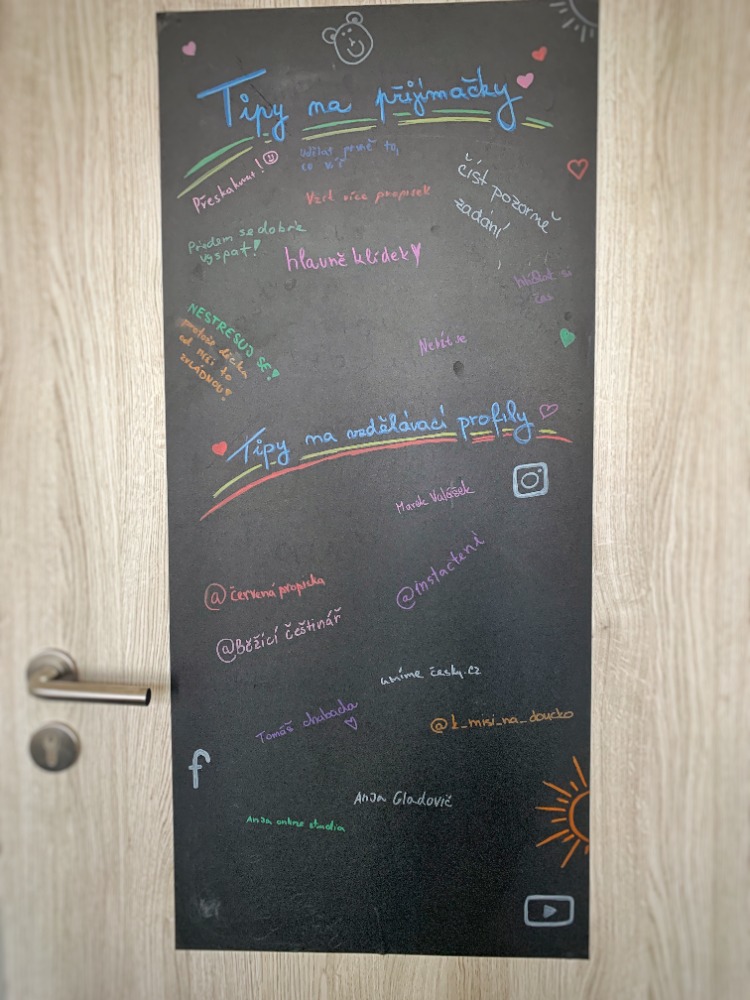 Tipy na přijímačky
Udělat prvně to,
co víš
Přeskakovat!
Vzít více propisek
číst pozorně
zadání
Předem se dobře
vyspat!
hlavně klídek
hlídat si
čas
NESTRESUJ SE!
protože děcka
od nás to
ZVLÁDNOU!
Nebát se
Tipy na vzdělávací profily
Marek Valášek
@instacteni
@červená propiska
@Běžící češtinář
umíme česky.cz
Tomáš chabada
@k_misi_na_doucko
f
Anja Gladovič
Anja online studia